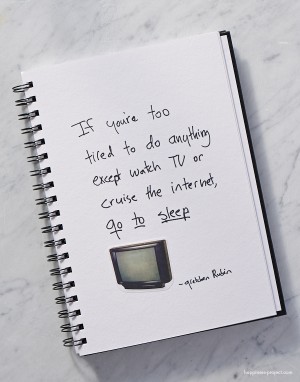 If you're too
tired to do anything
except watch TV or
cruise the internet,
go to sleep
- Gretchen Rubin